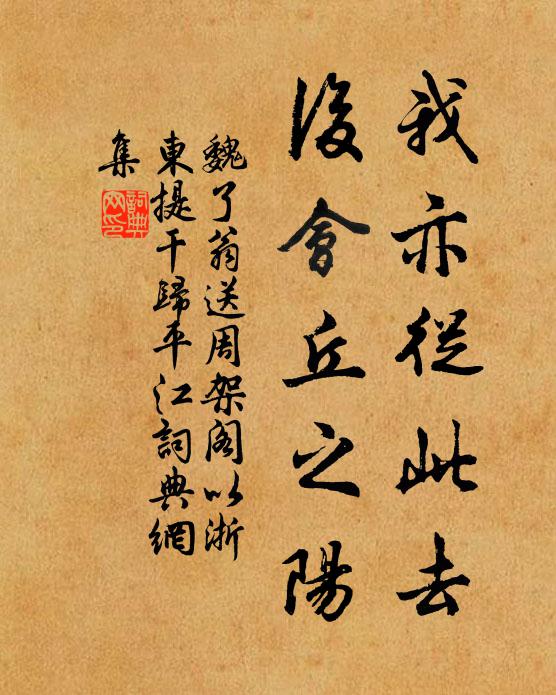 我亦從此去
後會丘之陽
魏了翁送周架阁以浙
東提干歸平江詞典網
集
詞典網印